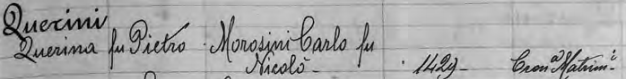 Querini
Querina fu Pietro Morosini Carlo fu
Nicolò - 1429 - Cron.ª Matrim.i